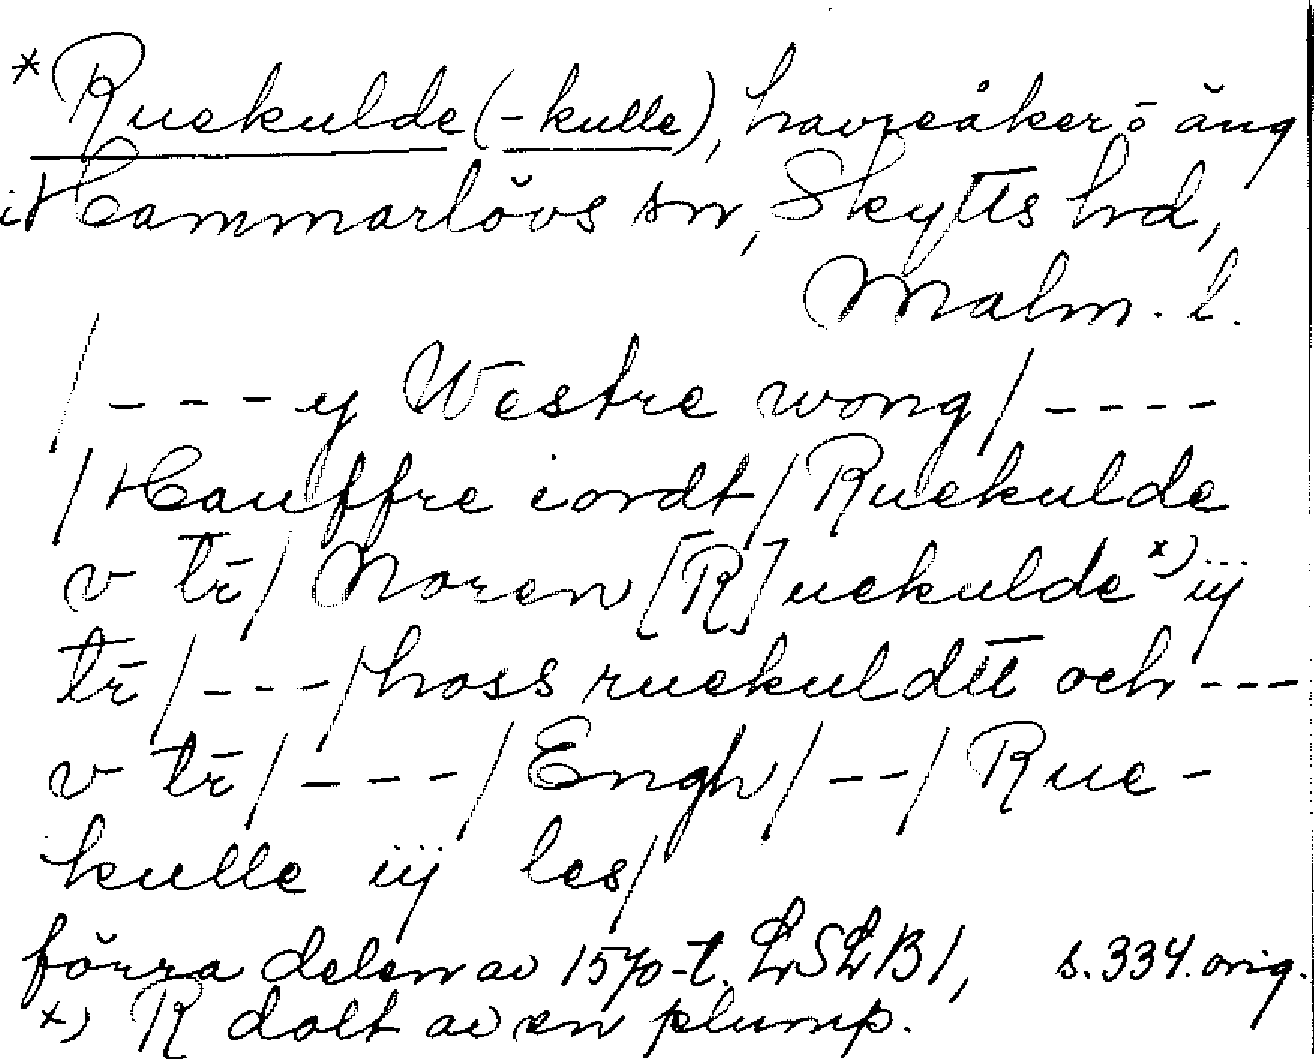 * Ruekulde (-kulle), havreåker o äng
i Hammarlövs sn, Skytts hd,
Malm. l.
/ - - - y Westre wong / - - - -
/ Hauffre iordt / Ruekulde
v tr̄ / Noren [R]uekulde x) iij
tr̄ / - - - / hoss ruekuldtt och - - -
v tr̄ / - - - / Engh / - - / Rue-
kulle iij les /
förra delen av 1570-t. LSLB 1, s. 334. orig.
x) R dolt av en plump.